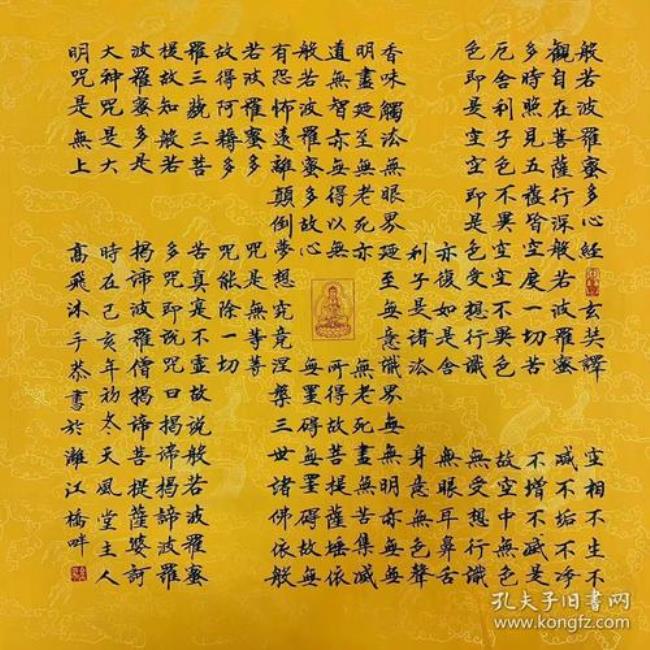 般若波羅蜜多心經 玄奘譯
觀自在菩薩行深般若波羅蜜
多時照見五蘊皆空度一切苦
厄舍利子色不異空空不異色
色即是空空即是色受想行識
亦復如是舍
利子是諸法
空相不生不
滅不垢不净
不增不減是
故空中無色
無受想行識
無眼耳鼻舌
身意無色聲
香味觸法無眼界廼至無意識界無無明亦無無
明盡廼至無老死亦
無老死盡無苦集滅
道無智亦無得以無
所得故菩提薩埵依
般若波羅蜜多故心
無罣礙無罣礙故無
有恐怖遠離顛倒夢想究竟涅槃三世諸佛依般
若波羅蜜多
故得阿耨多
羅三藐三菩
提故知般若
波羅蜜多是
大神咒是大
明咒是無上
咒是無等等
咒能除一切
苦真實不虛故說般若波羅蜜
多咒即說咒曰揭諦揭諦波羅
揭諦波羅僧揭諦菩提薩婆訶
時在己亥年初冬天風堂主人
高飛沐手恭書於灕江橋畔
孔夫子旧書网
www.kongfz.com